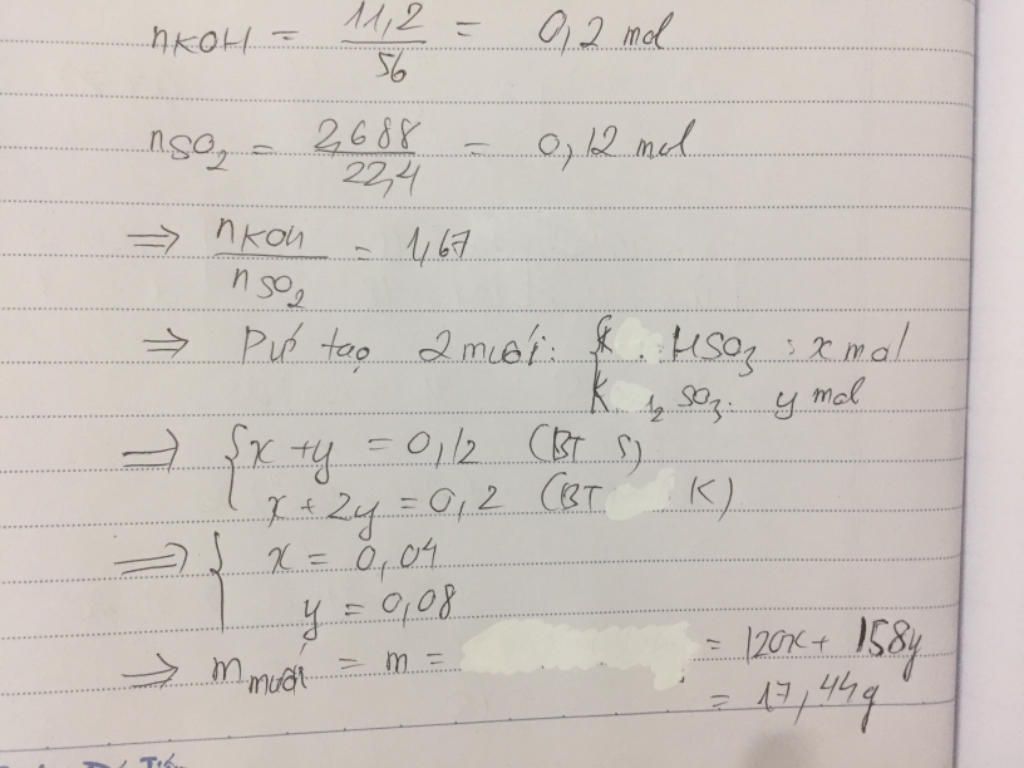 nKOH = 11,2/56 = 0,2 mol
nSO2 = 2,688/22,4 = 0,12 mol
⇒ nKOH/nSO2 = 1,67
⇒ Pứ tạo 2 muối: { K HSO3 : x mol
K 2 SO3 : y mol
⇒ { x + y = 0,12 (BT S)
x + 2y = 0,2 (BT K)
⇒ { x = 0,04
y = 0,08
⇒ m muối = m = = 120x + 158y
= 17,44g